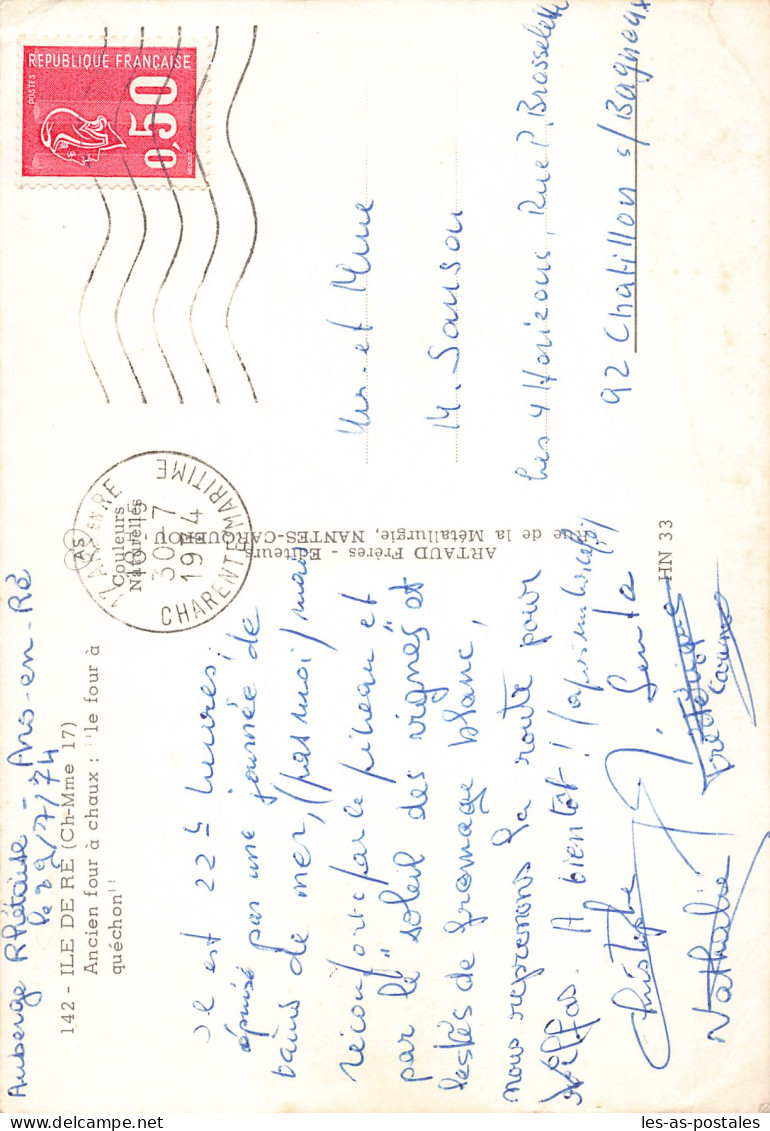 Auberge Rhétaise - Ars-en-Ré
le 29/7/74
142 - ILE DE RÉ (Ch-Mme 17)
Ancien four à chaux : "le four à
quéchon"
AS
Couleurs
Naturelles
il est 22h heures;
épuisé par une journée de
bains de mer, (pas moi) mais
réconforté par le pineau et
par le "soleil des vignes" et
lestés de fromage blanc,
nous reprenons la route pour
A bientôt!
Christophe
Nathalie
Frédérique
ARTAUD Frères - Editeurs
Rue de la Métallurgie, NANTES-CARQUEFOU
HN 33
17 ARS EN RE
30-7
1974
CHARENTE MARITIME
REPUBLIQUE FRANÇAISE
POSTES
0,50
Mr. et Mme
M. Sanson
Les 4 Horizons, Rue P. Brossolette
92 Chatillon s/Bagneux
les-as-postales